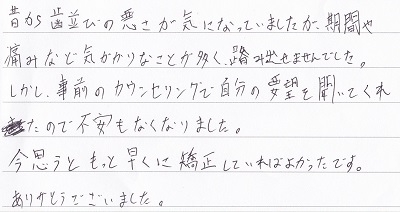 昔から歯並びの悪さが気になっていましたが、期間や
痛みなど気がかりなことが多く、踏み出せませんでした。
しかし、事前のカウンセリングで自分の要望を聞いてくれ
たので不安もなくなりました。
今思うともっと早くに矯正していればよかったです。
ありがとうございました。